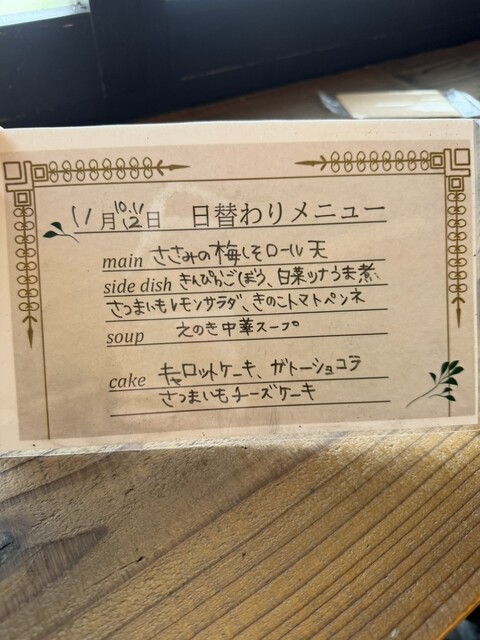 11月10.11.12日 日替わりメニュー
main ささみの梅しそロール天
side dish きんぴらごぼう、白菜ツナうま煮、
さつまいもレモンサラダ、きのこトマトペンネ
soup えのき中華スープ
cake キャロットケーキ、ガトーショコラ
さつまいもチーズケーキ